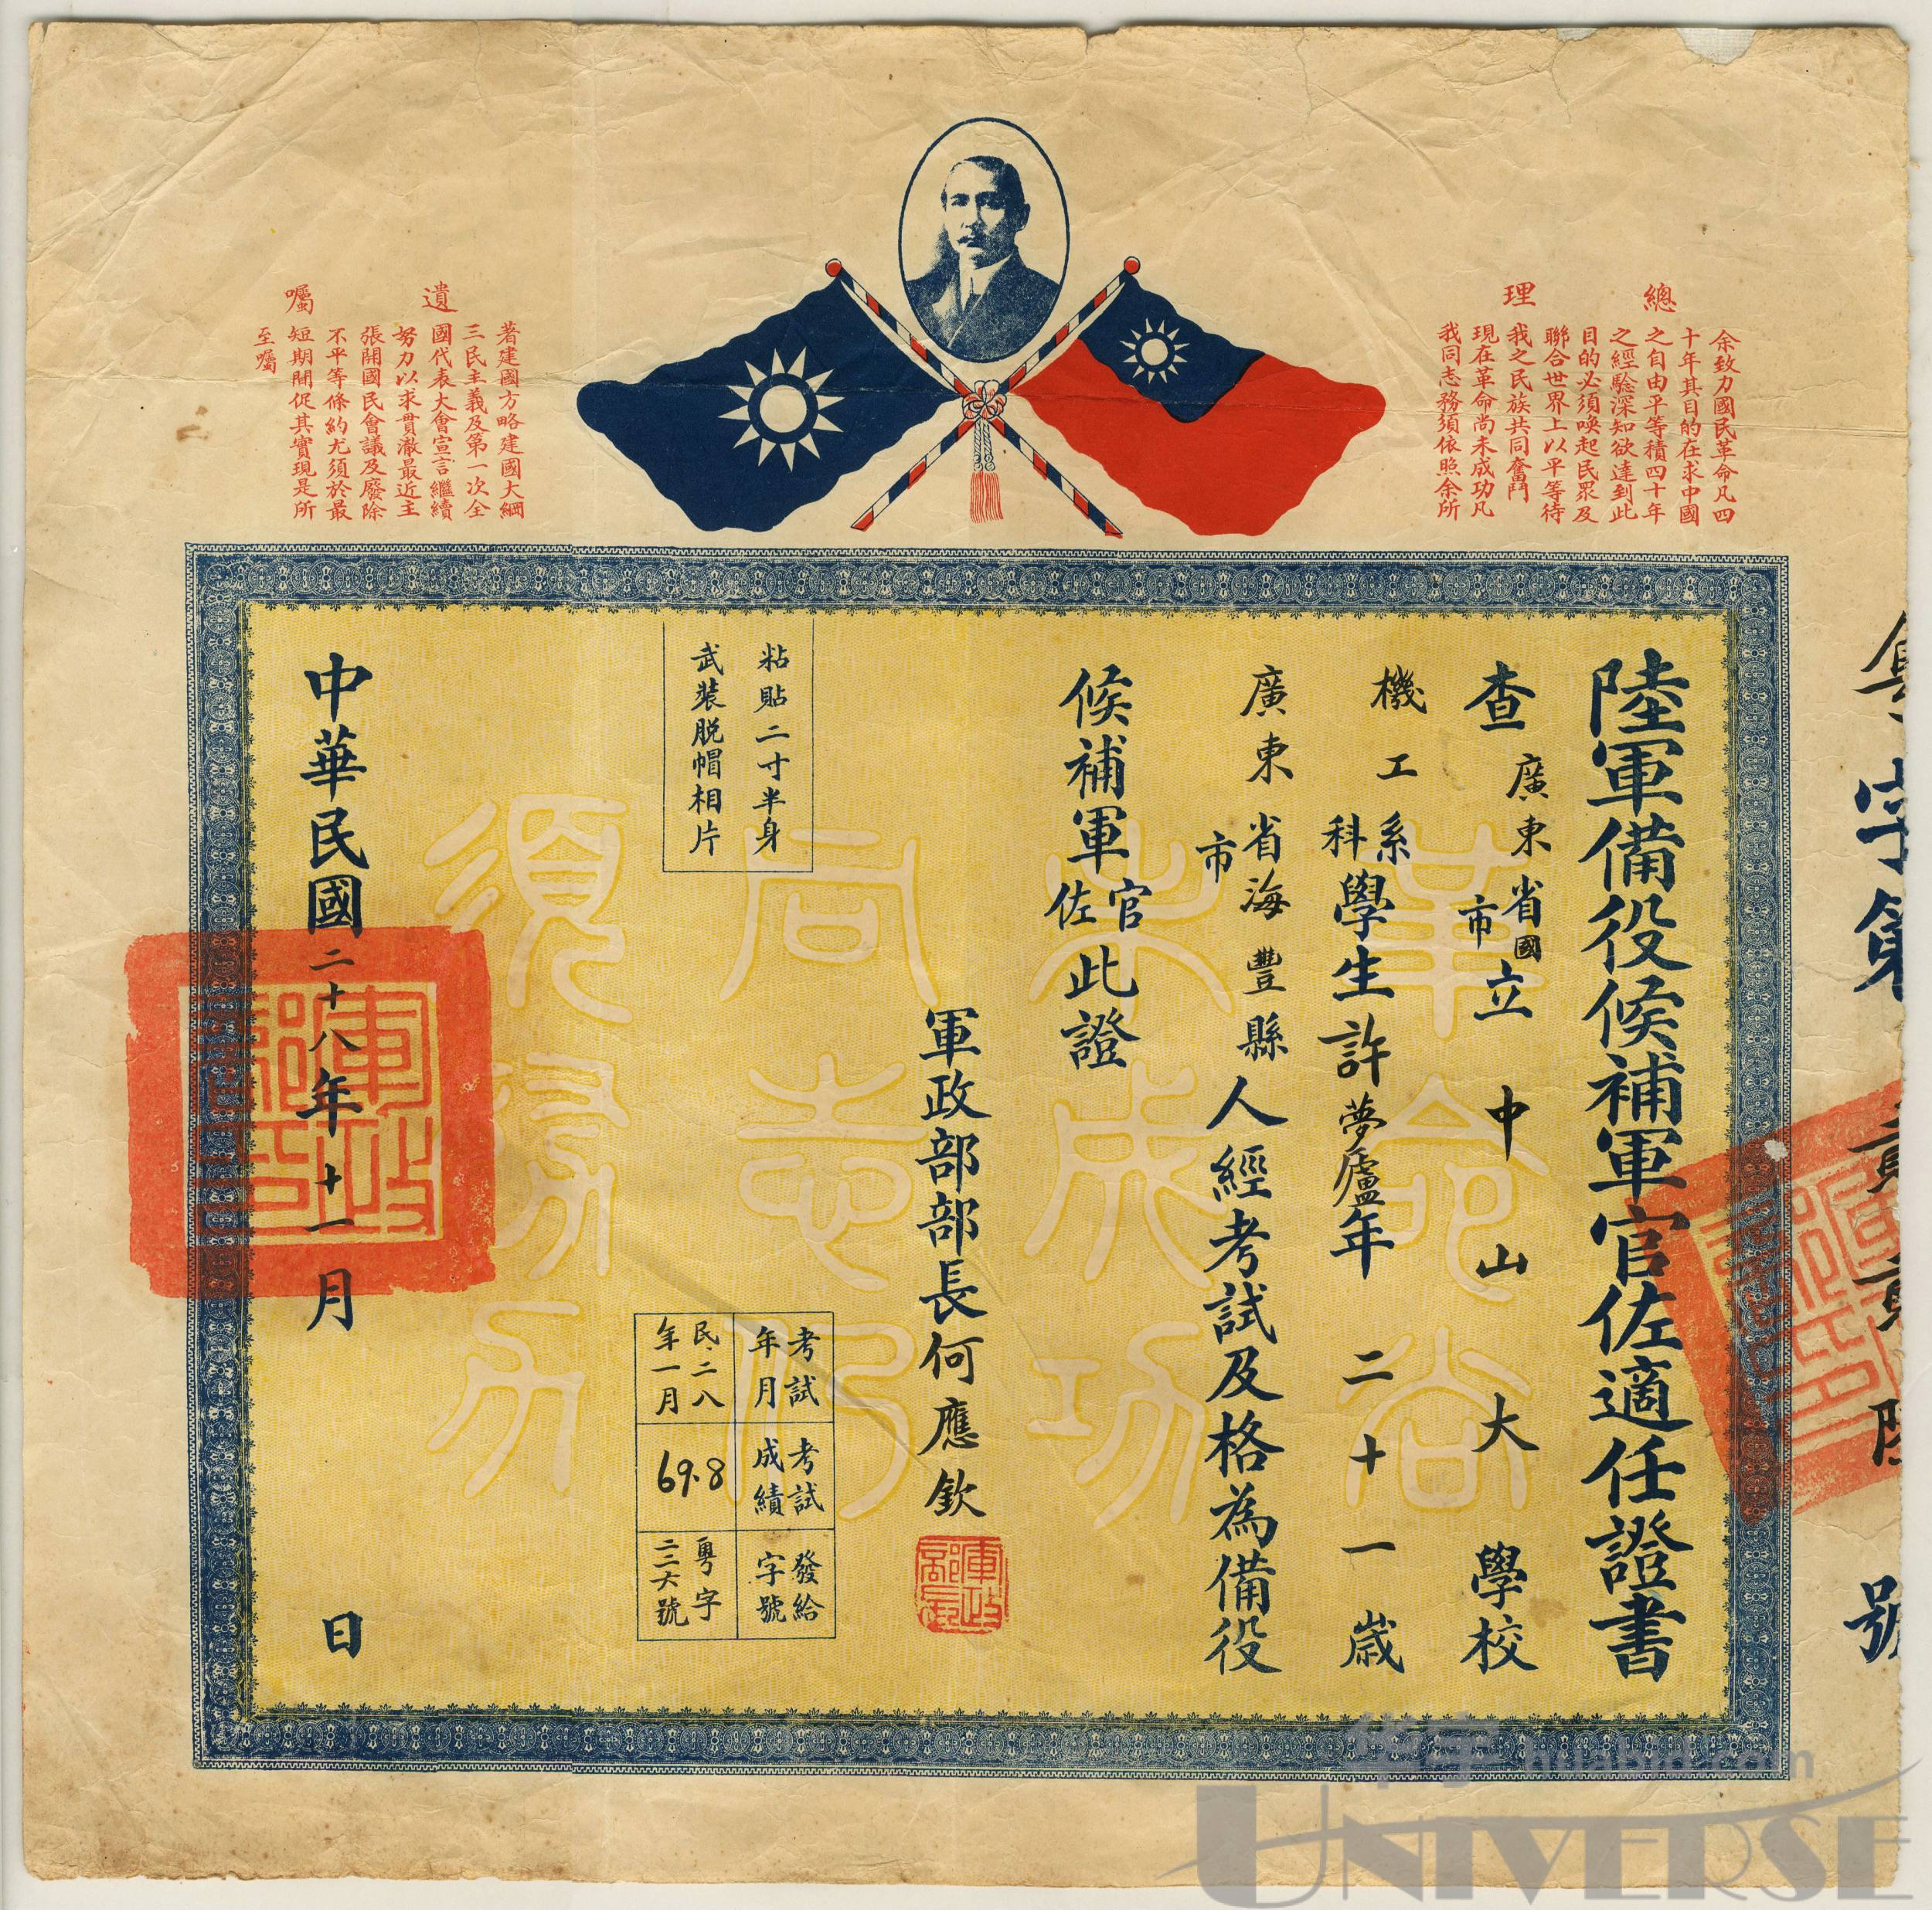 總理
余致力國民革命凡四
十年其目的在求中國
之自由平等積四十年
之經驗深知欲達到此
目的必須喚起民眾及
聯合世界上以平等待
我之民族共同奮鬥
現在革命尚未成功凡
我同志務須依照余所
遺囑
著建國方略建國大綱
三民主義及第一次全
國代表大會宣言繼續
努力以求貫澈最近主
張開國民會議及廢除
不平等條約尤須於最
短期間促其實現是所
至囑
粵字第貳貳陸號
陸軍備役候補軍官佐適任證書
查廣東省市國立中山大學校
機工系科學生許夢廬年二十一歲
廣東省市海豐縣人經考試及格為備役
候補軍官佐此證
軍政部部長何應欽
軍政部長
粘貼二寸半身
武裝脱帽相片
考試年月
民.二八年一月
考試成績
69.8
發給字號
粵字二二六號
中華民國二十八年十一月 日
軍政部印
革命尚
未成功
同志仍
須努力
华宇 huabid.com
UNIVERSE